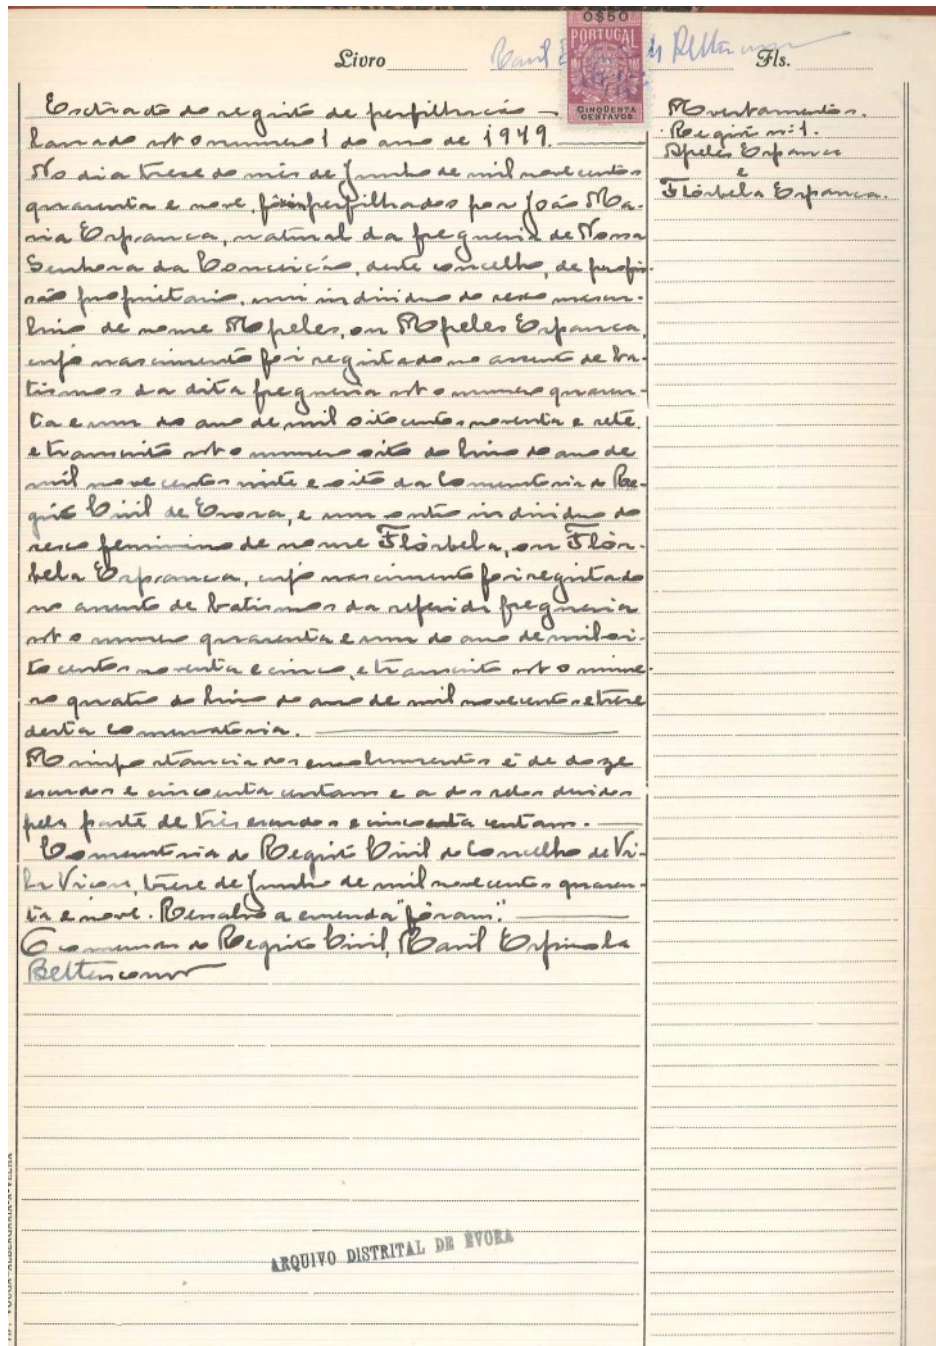 0$50
PORTUGAL
CINQÜENTA
CENTAVOS
Livro
Raul Bettencourt
Fls.
Extracto do registo de perfilhação
lavrado sob o numero 1 do ano de 1949.
No dia treze do mês de Junho de mil novecentos
quarenta e nove, fôram perfilhados por João Ma-
ria Espanca, natural da freguesia de Nossa
Senhora da Conceição, deste concelho, de profis-
são proprietario, um individuo do sexo mascu-
lino de nome Apeles, ou Apeles Espanca,
cujo nascimento foi registado no assento de ba-
tismos da dita freguesia sob o numero quaren-
ta e um do ano de mil oitocentos noventa e sete,
e transcrito sob o numero oito do livro do ano de
mil novecentos vinte e oito da Conservatoria do Re-
gisto Civil de Evora, e um outro individuo do
sexo feminino de nome Flórbela, ou Flór-
bela Espanca, cujo nascimento foi registado
no assento de batismos da referida freguesia
sob o numero quarenta e um do ano de mil oi-
tocentos noventa e cinco, e transcrito sob o nume-
ro quatro do livro do ano de mil novecentos e treze
desta Conservatoria.
A importancia dos emolumentos é de doze
escudos e cincoenta centavos e a dos selos devidos
pela parte de três escudos e cincoenta centavos.
Conservatoria do Registo Civil do Concelho de Vi-
la Viçosa, treze de Junho de mil novecentos quaren-
ta e nove. Ressalvo a emenda "fôram".
O Conservador do Registo Civil, Raul Espinola
Bettencourt
Averbamentos.
Registo nº 1.
Apeles Espanca
e
Flórbela Espanca.
ARQUIVO DISTRITAL DE ÉVORA